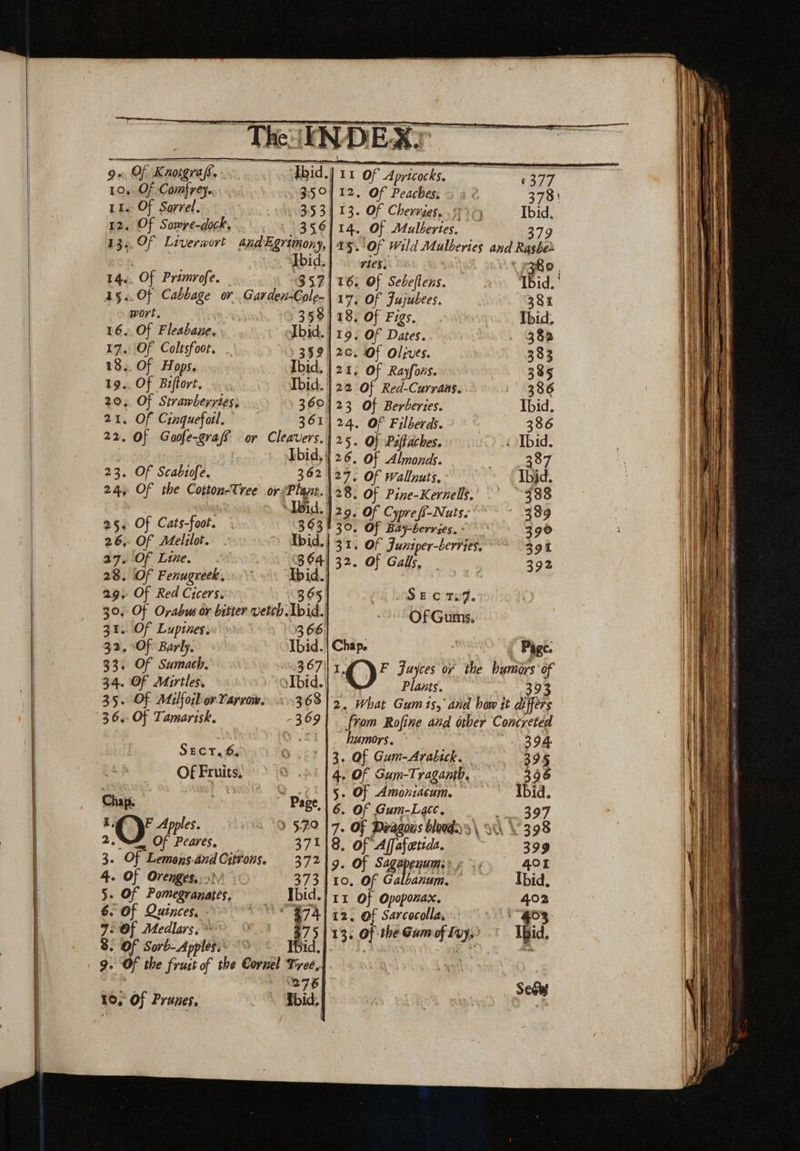 The INDEX.
9. Of Knotgrass. Ibid.
10. Of Comfrey. 350
11. Of Sorrel. 353
12. Of Sowre-dock. 356
13. Of Liverwort and Egrimony,
Ibid.
14. Of Primrose. 357
15. Of Cabbage or Garden-Cole-
wort. 358
16. Of Fleabane. Ibid.
17. Of Coltsfoot. 359
18. Of Hops. Ibid.
19. Of Bistort. Ibid.
20. Of Strawberries. 360
21. Of Cinquefoil. 361
22. Of Goose-grass or Cleavers.
Ibid.
23. Of Scabiose. 362
24. Of the Cotton-Tree or Plant.
Ibid.
25. Of Cats-foot. 363
26. Of Melilot. Ibid.
27. Of Line. 364
28. Of Fenugreek. Ibid.
29. Of Red Cicers. 365
30. Of Orabus or bitter vetch. Ibid.
31. Of Lupines. 366
32. Of Barly. Ibid.
33. Of Sumach. 367
34. Of Mirtles. Ibid.
35. Of Milfoil or Yarrow. 368
36. Of Tamarisk. 369
SECT. 6.
Of Fruits.
Chap. Page.
1. OF Apples. 570
2. Of Peares. 371
3. Of Lemons and Citrons. 372
4. Of Orenges. 373
5. Of Pomegranates. Ibid.
6. Of Quinces. 374
7. Of Medlars. 375
8. Of Sorb-Apples. Ibid.
9. Of the fruit of the Cornel Tree.
276
10. Of Prunes. Ibid.
11 Of Apricocks. 377
12. Of Peaches. 378
13. Of Cherries. Ibid.
14. Of Mulberies. 379
15. Of Wild Mulberies and Rasbe-
ries. 380
16. Of Sebestens. Ibid.
17. Of Jujubees. 381
18. Of Figs. Ibid.
19. Of Dates. 382
20. Of Olives. 383
21. Of Raysons. 385
22 Of Red-Currans. 386
23 Of Berberies. Ibid.
24. Of Filberds. 386
25. Of Pistaches. Ibid.
26. Of Almonds. 387
27. Of Wallnuts. Ibid.
28. Of Pine-Kernells. 388
29. Of Cypress-Nuts. 389
30. Of Bay-berries. 390
31. Of Juniper-berries. 391
32. Of Galls. 392
SECT. 7.
Of Gums.
Chap. Page.
1. OF Juyces or the humors of
Plants. 393
2. What Gum is, and how it differs
from Rosine and other Concreted
humors. 394
3. Of Gum-Arabick. 395
4. Of Gum-Traganth. 396
5. Of Amoniacum. Ibid.
6. Of Gum-Lacc. 397
7. Of Dragons blood. 398
8. Of Assafœtida. 399
9. Of Sagapenum. 401
10. Of Galbanum. Ibid.
11 Of Opoponax. 402
12. Of Sarcocolla. 403
13. Of the Gum of Ivy. Ibid.